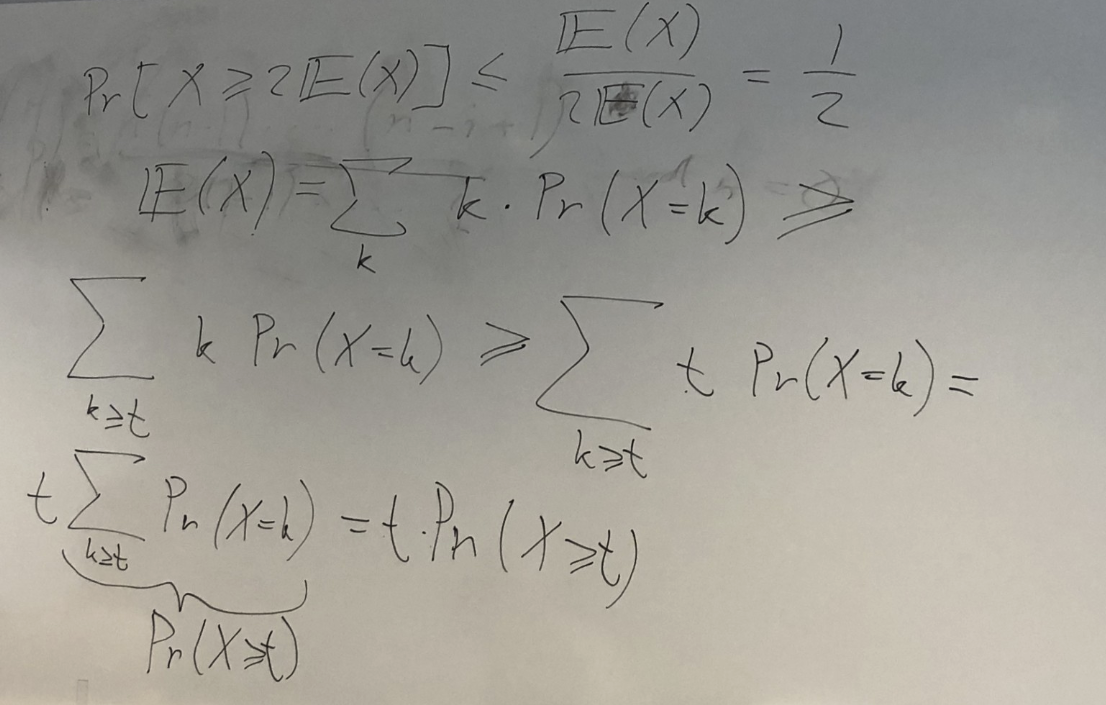 Pr[X ≥ 2𝔼(X)] ≤ 𝔼(X) / 2𝔼(X) = 1/2
𝔼(X) = ∑_k k · Pr(X=k) ≥
∑_{k≥t} k Pr(X=k) ≥ ∑_{k≥t} t Pr(X=k) =
t ∑_{k≥t} Pr(X=k) = t · Pr(X≥t)
Pr(X≥t)